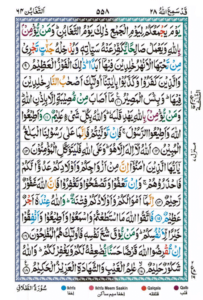 قَدْ سَمِعَ اللّٰهُ ٢٨ ٥٥٨ اَلتَّغَابُن ٦٤
يَوْمَ يَجْمَعُكُمْ لِيَوْمِ الْجَمْعِ ذٰلِكَ يَوْمُ التَّغَابُنِ ؕ وَمَنْ يُّؤْمِنْۢ
بِاللّٰهِ وَيَعْمَلْ صَالِحًا يُّكَفِّرْ عَنْهُ سَيِّاٰتِهٖ وَيُدْخِلْهُ جَنّٰتٍ تَجْرِيْ
مِنْ تَحْتِهَا الْاَنْهٰرُ خٰلِدِيْنَ فِيْهَاۤ اَبَدًا ؕ ذٰلِكَ الْفَوْزُ الْعَظِيْمُ
وَالَّذِيْنَ كَفَرُوْا وَكَذَّبُوْا بِاٰيٰتِنَاۤ اُولٰٓئِكَ اَصْحٰبُ النَّارِ خٰلِدِيْنَ
فِيْهَا ؕ وَبِئْسَ الْمَصِيْرُ مَاۤ اَصَابَ مِنْ مُّصِيْبَةٍ اِلَّا بِاِذْنِ اللّٰهِ ؕ
وَمَنْ يُّؤْمِنْۢ بِاللّٰهِ يَهْدِ قَلْبَهٗ ؕ وَاللّٰهُ بِكُلِّ شَيْءٍ عَلِيْمٌ وَاَطِيْعُوا
اللّٰهَ وَاَطِيْعُوا الرَّسُوْلَ ۚ فَاِنْ تَوَلَّيْتُمْ فَاِنَّمَا عَلٰى رَسُوْلِنَا الْبَلٰغُ
الْمُبِيْنُ اَللّٰهُ لَاۤ اِلٰهَ اِلَّا هُوَ ؕ وَعَلَى اللّٰهِ فَلْيَتَوَكَّلِ الْمُؤْمِنُوْنَ
يٰۤاَيُّهَا الَّذِيْنَ اٰمَنُوْۤا اِنَّ مِنْ اَزْوَاجِكُمْ وَاَوْلَادِكُمْ عَدُوًّا لَّكُمْ
فَاحْذَرُوْهُمْ ۚ وَاِنْ تَعْفُوْا وَتَصْفَحُوْا وَتَغْفِرُوْا فَاِنَّ اللّٰهَ غَفُوْرٌ
رَّحِيْمٌ اِنَّمَاۤ اَمْوَالُكُمْ وَاَوْلَادُكُمْ فِتْنَةٌ ؕ وَاللّٰهُ عِنْدَهٗۤ اَجْرٌ
عَظِيْمٌ فَاتَّقُوا اللّٰهَ مَا اسْتَطَعْتُمْ وَاسْمَعُوْا وَاَطِيْعُوْا وَاَنْفِقُوْا
خَيْرًا لِّاَنْفُسِكُمْ ؕ وَمَنْ يُّوْقَ شُحَّ نَفْسِهٖ فَاُولٰٓئِكَ هُمُ الْمُفْلِحُوْنَ
اِنْ تُقْرِضُوا اللّٰهَ قَرْضًا حَسَنًا يُّضٰعِفْهُ لَكُمْ وَيَغْفِرْ لَكُمْ ؕ وَاللّٰهُ
شَكُوْرٌ حَلِيْمٌ عٰلِمُ الْغَيْبِ وَالشَّهَادَةِ الْعَزِيْزُ الْحَكِيْمُ